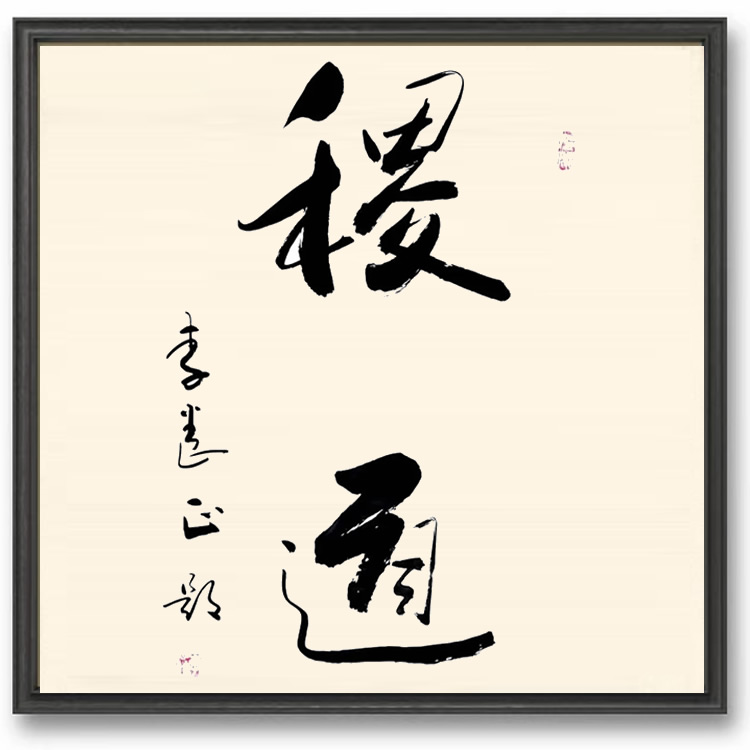 稷通
李正题